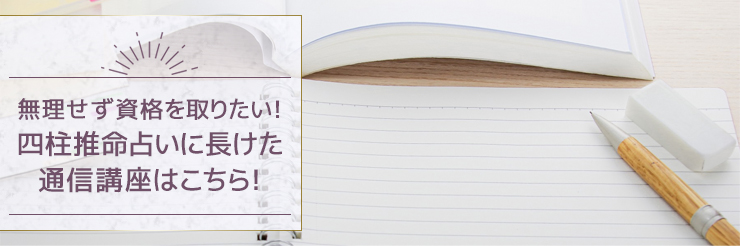 無理せず資格を取りたい!
四柱推命占いに長けた
通信講座はこちら!